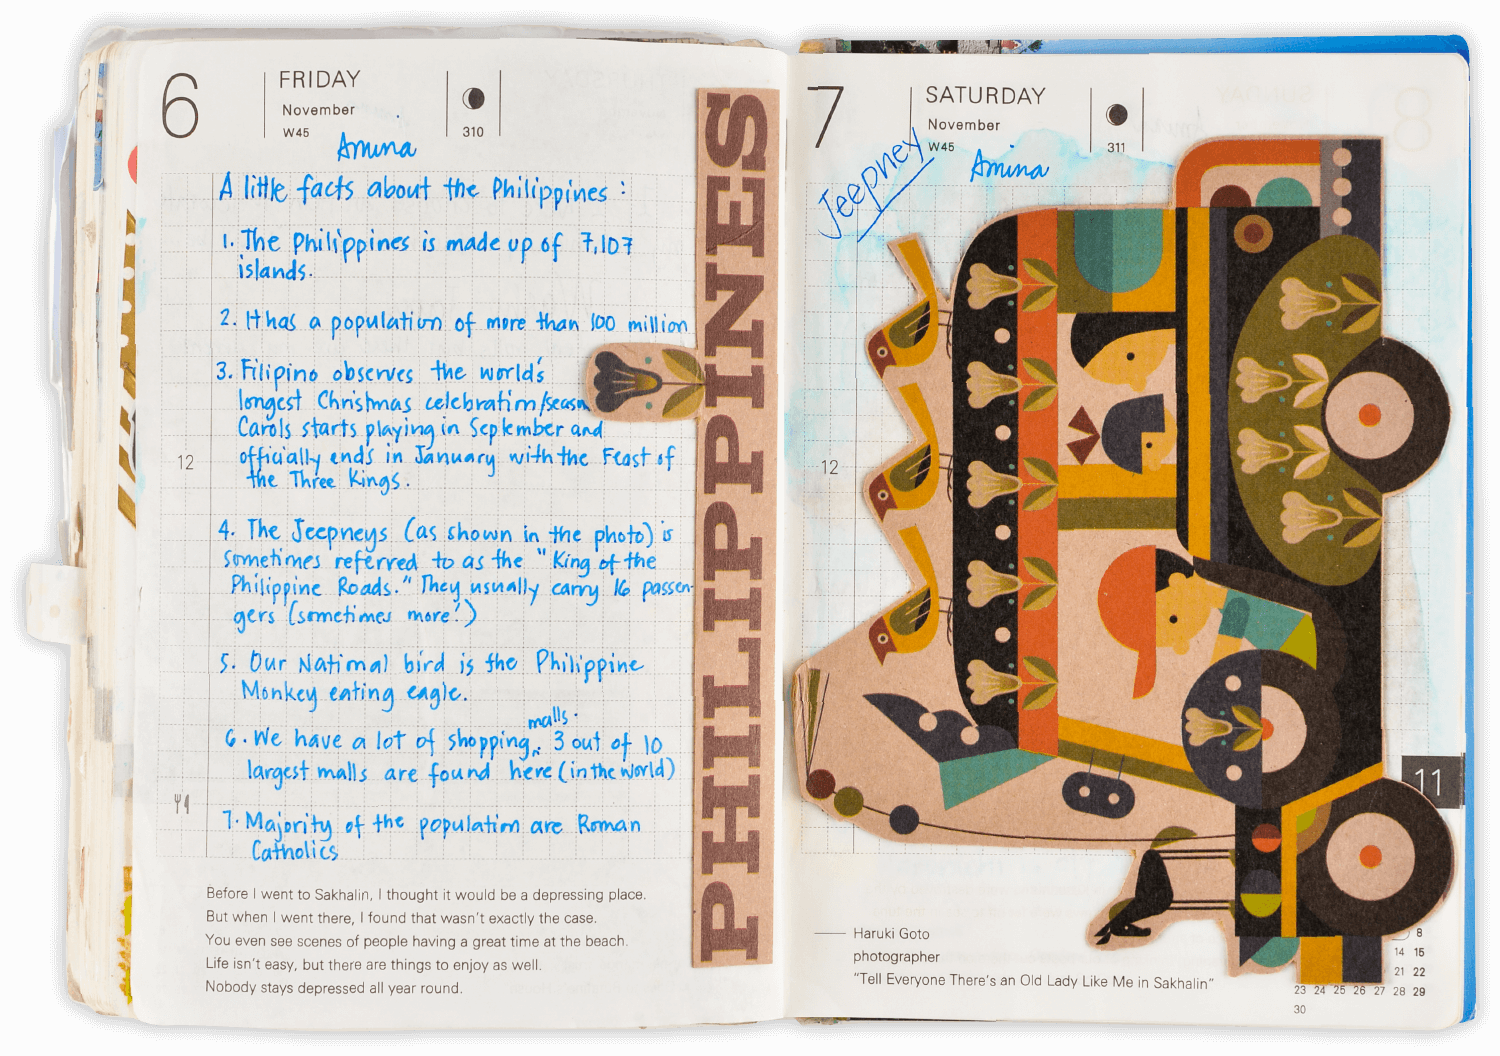 6
FRIDAY
November
W45
310
Amina
A little facts about the Philippines :
1. The Philippines is made up of 7,107
islands.
2. It has a population of more than 100 million
3. Filipino observes the world's
longest Christmas celebration/season
Carols starts playing in September and
officially ends in January with the Feast of
the Three Kings.
4. The Jeepneys (as shown in the photo) is
sometimes referred to as the "King of the
Philippine Roads." They usually carry 16 passen-
gers (sometimes more!)
5. Our National bird is the Philippine
Monkey eating eagle.
6. We have a lot of shopping malls. 3 out of 10
largest malls are found here (in the world)
7. Majority of the population are Roman
Catholics
12
Before I went to Sakhalin, I thought it would be a depressing place.
But when I went there, I found that wasn't exactly the case.
You even see scenes of people having a great time at the beach.
Life isn't easy, but there are things to enjoy as well.
Nobody stays depressed all year round.
PHILIPPINES
7
SATURDAY
November
W45
311
Jeepney
Amina
12
11
Haruki Goto
photographer
"Tell Everyone There's an Old Lady Like Me in Sakhalin"
8
14 15
21 22
23 24 25 26 27 28 29
30